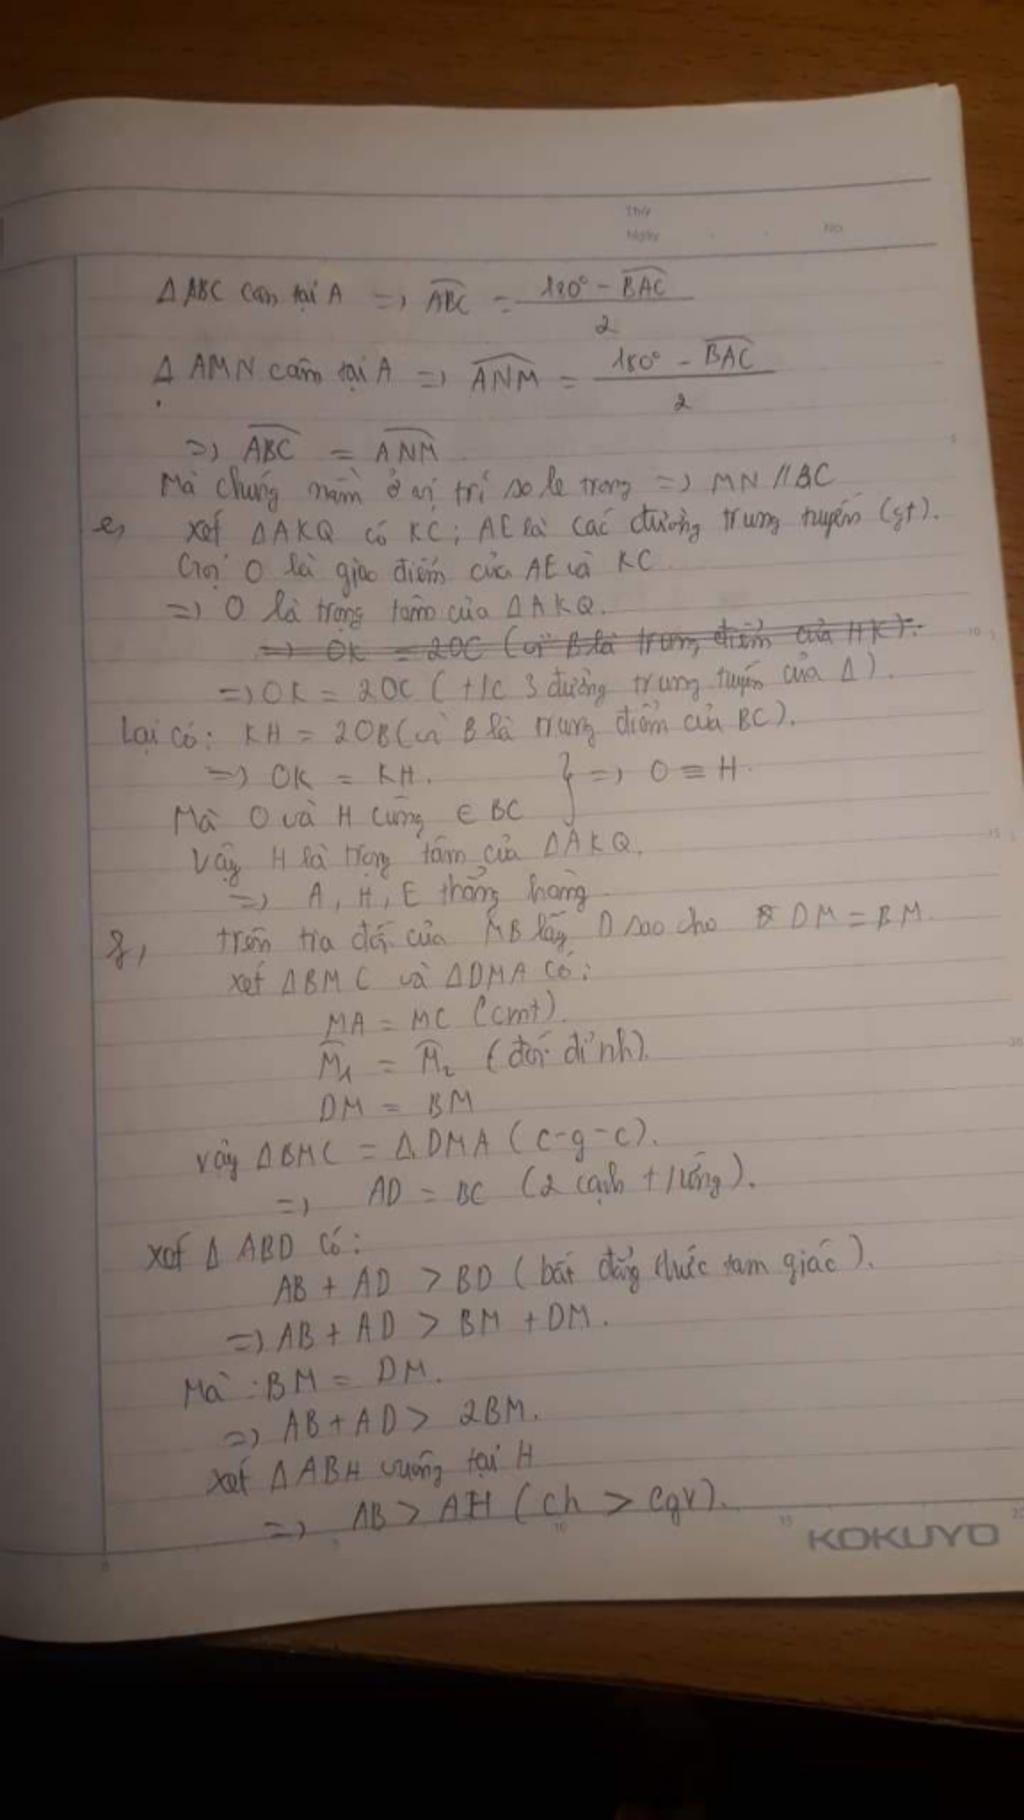 Thứ
Ngày . . No
Δ ABC cân tại A => ABC = 180° - BAC / 2
Δ AMN cân tại A => ANM = 180° - BAC / 2
=> ABC = ANM
Mà chúng nằm ở vị trí so le trong => MN // BC
e, xét ΔAKQ có KC; AE là các đường trung tuyến (gt).
Gọi O là giao điểm của AE và KC
=> O là trọng tâm của ΔAKQ.
=> OK = 2OC (vì B là trung điểm của HK).
=> OK = 2OC (t/c 3 đường trung tuyến của Δ).
Lại có: KH = 2OB (vì B là trung điểm của BC).
=> OK = KH. } => O ≡ H.
Mà O và H cùng ∈ BC
Vậy H là trọng tâm của ΔAKQ.
=> A, H, E thẳng hàng.
g, trên tia đối của MB lấy D sao cho DM = BM.
xét ΔBMC và ΔDMA có:
MA = MC (cmt).
M1 = M2 (đối đỉnh).
DM = BM
vậy ΔBMC = ΔDMA (c-g-c).
=> AD = BC (2 cạnh t/ứng).
xét Δ ABD có:
AB + AD > BD (bất đẳng thức tam giác).
=> AB + AD > BM + DM.
Mà : BM = DM.
=> AB + AD > 2BM.
xét ΔABH vuông tại H
=> AB > AH (ch > cgv).
KOKUYO